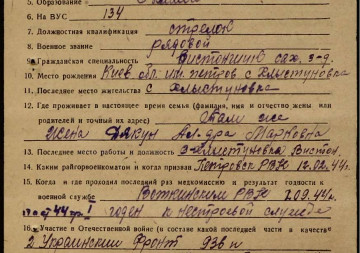 5. Образование
6. На ВУС 134
7. Должностная квалификация стрелок
8. Военное звание рядовой
9. Гражданская специальность сах. з-д.
10. Место рождения Киев обл. им. Петров с Хлыстуновка
11. Последнее место жительства с Хлыстуновка
12. Где проживает в настоящее время семья (фамилия, имя и отчество жены или
родителей и точный их адрес) Там же
Жена Дакун Марковна
13. Последнее место работы и должность
14. Каким райгорвоенкоматом и когда призван Петровск РВК 17.02.44г.
15. Когда и где проходил последний раз медкомиссию и результат годности к
военной службе РВК 7.09.44г.
годен к нестроевой службе
16. Участие в Отечественной войне (в составе какой последней части и в качестве
2 Украинский Фронт 936 п